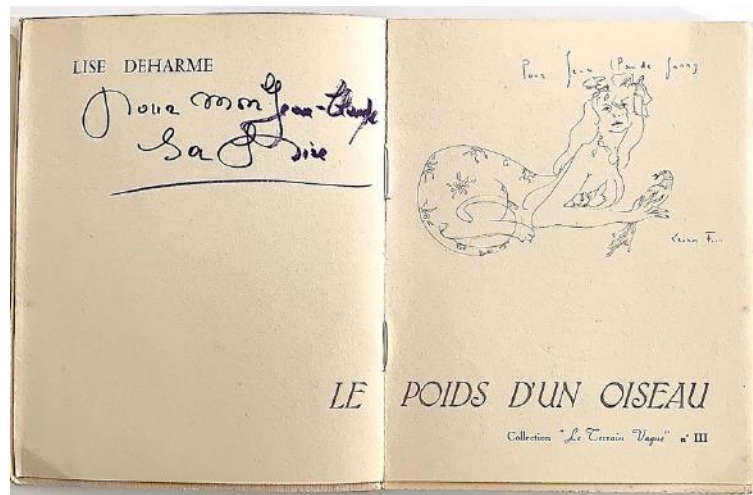 LISE DEHARME
Pour mon Jean-Claude
Sa Lise
Pour Jean Claude
Leonor Fini
LE POIDS D'UN OISEAU
Collection "Le Terrain Vague" n° III